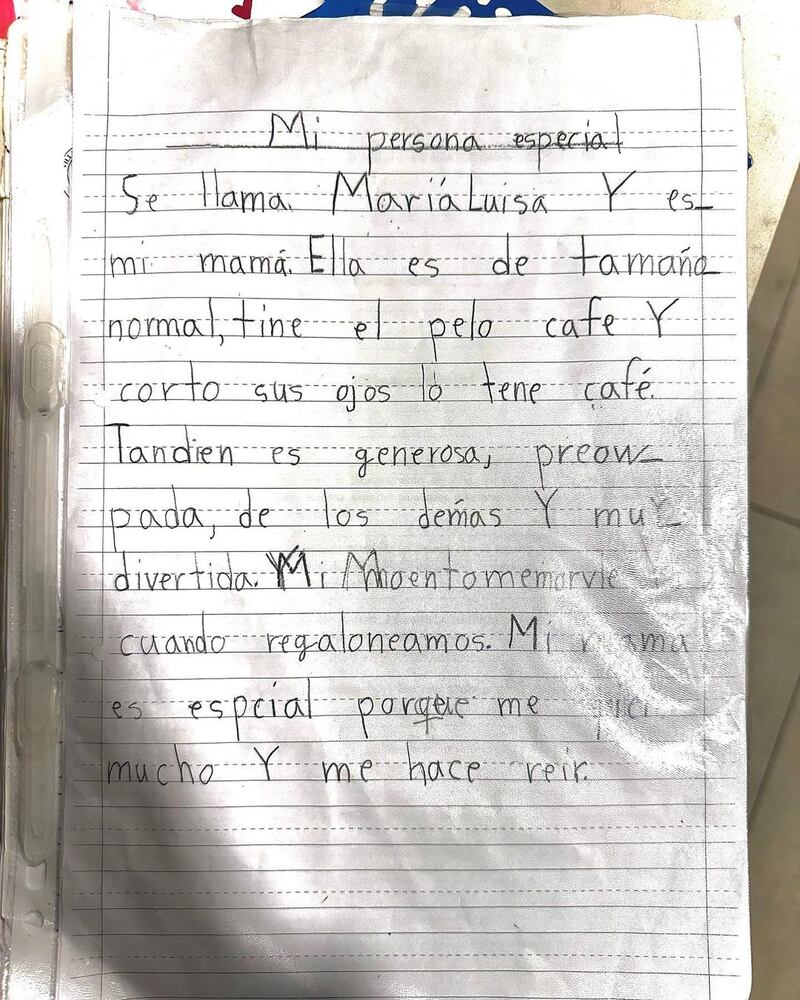 Mi persona especial
Se llama. MariáLuisa Y es
mi mamá. Ella es de tamaño
normal, tine el pelo cafe Y
corto sus ojos lo tene café.
Tandien es generosa, preocu
pada, de los demás Y muy
divertida. Mi
cuando regaloneamos. Mi mama
es espcial porque me
mucho Y me hace reir.